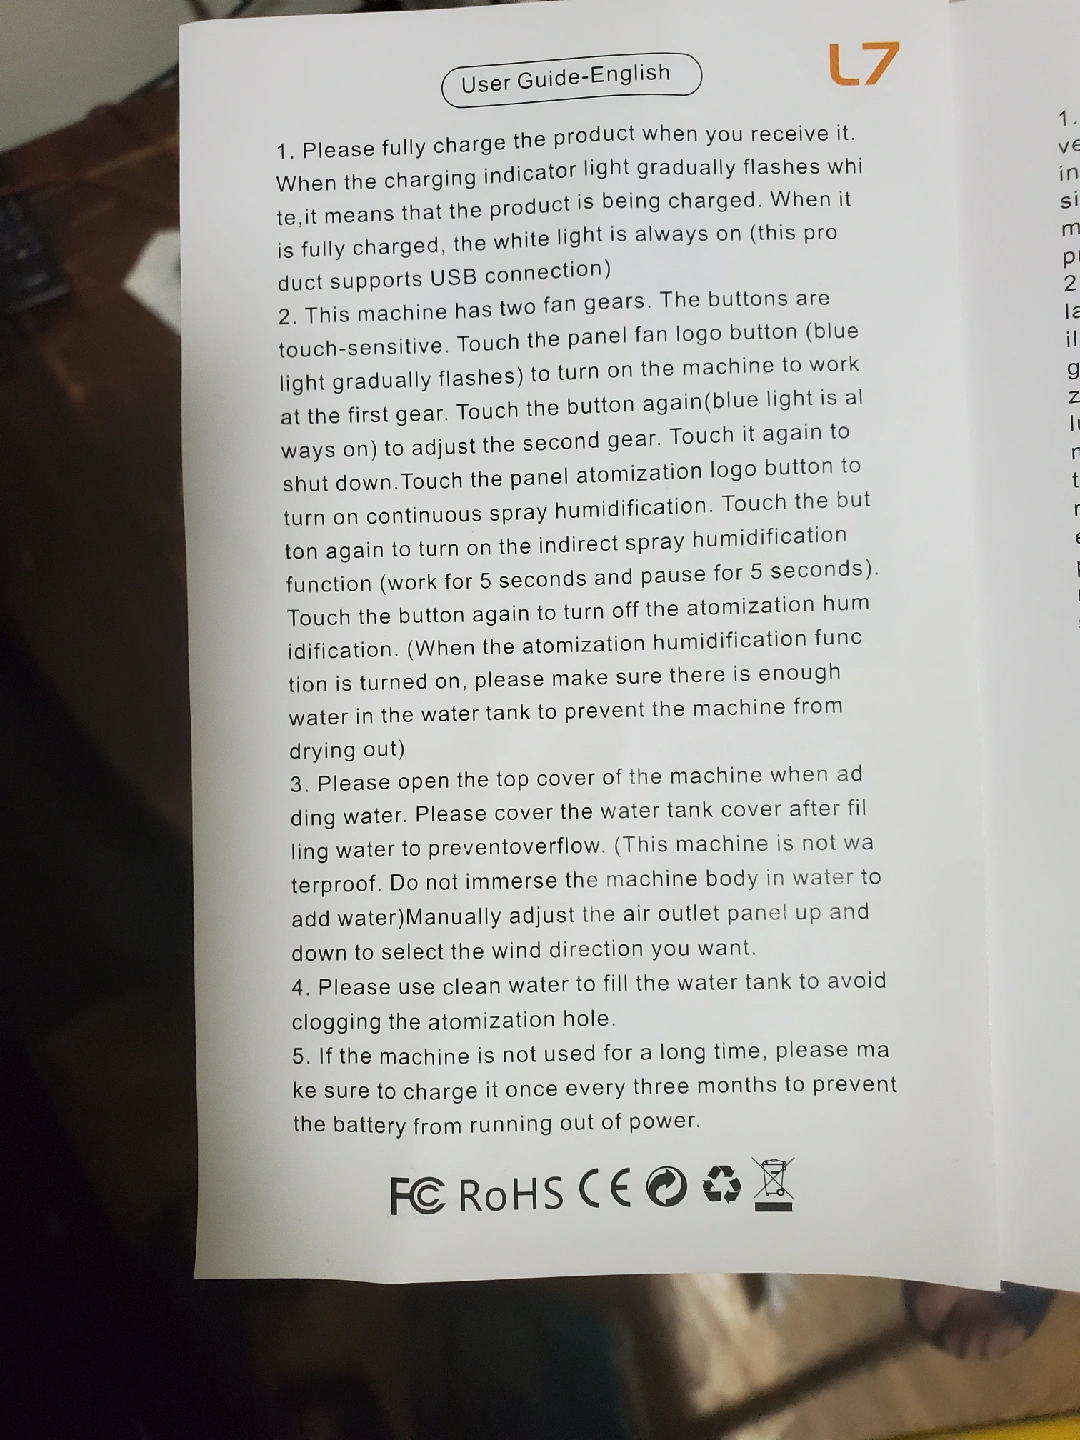 User Guide-English
L7
1. Please fully charge the product when you receive it.
When the charging indicator light gradually flashes whi
te,it means that the product is being charged. When it
is fully charged, the white light is always on (this pro
duct supports USB connection)
2. This machine has two fan gears. The buttons are
touch-sensitive. Touch the panel fan logo button (blue
light gradually flashes) to turn on the machine to work
at the first gear. Touch the button again(blue light is al
ways on) to adjust the second gear. Touch it again to
shut down.Touch the panel atomization logo button to
turn on continuous spray humidification. Touch the but
ton again to turn on the indirect spray humidification
function (work for 5 seconds and pause for 5 seconds).
Touch the button again to turn off the atomization hum
idification. (When the atomization humidification func
tion is turned on, please make sure there is enough
water in the water tank to prevent the machine from
drying out)
3. Please open the top cover of the machine when ad
ding water. Please cover the water tank cover after fil
ling water to preventoverflow. (This machine is not wa
terproof. Do not immerse the machine body in water to
add water)Manually adjust the air outlet panel up and
down to select the wind direction you want.
4. Please use clean water to fill the water tank to avoid
clogging the atomization hole.
5. If the machine is not used for a long time, please ma
ke sure to charge it once every three months to prevent
the battery from running out of power.
FC RoHS CE
1.
2